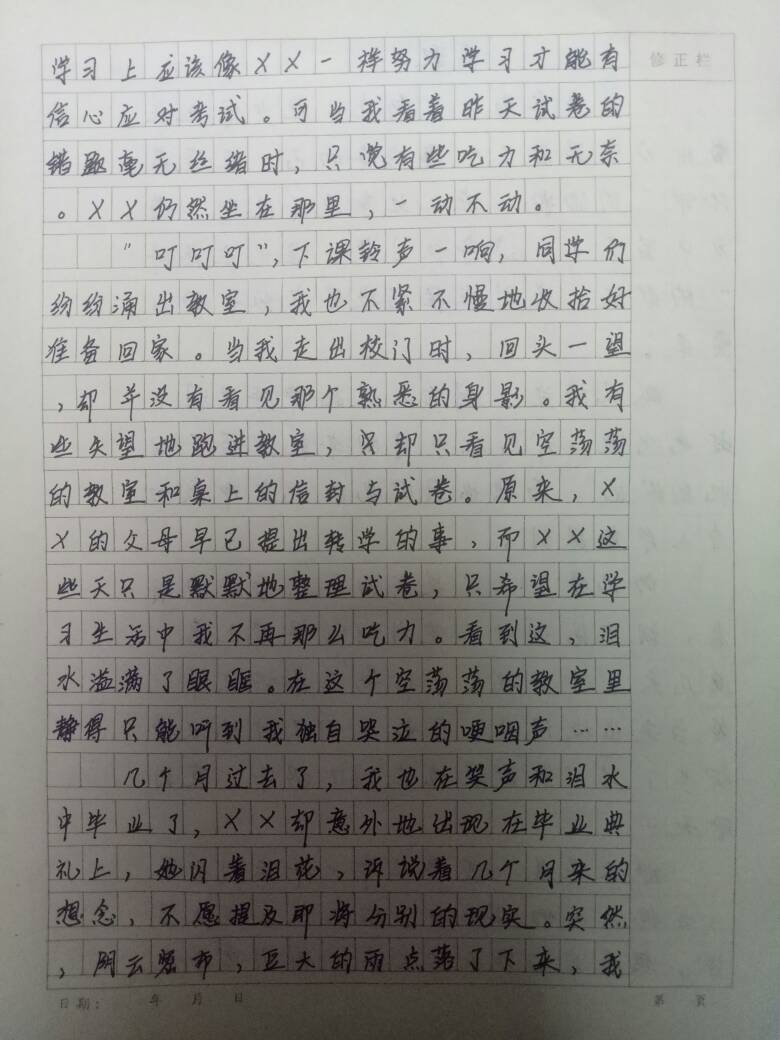 修正栏
学习上应该像XX一样努力学习才能有
信心应对考试。可当我看着昨天试卷的
错题毫无丝绪时，只觉有些吃力和无奈
。XX仍然坐在那里，一动不动。
“叮叮叮”，下课铃声一响，同学们
纷纷涌出教室，我也不紧不慢地收拾好
准备回家。当我走出校门时，回头一望
，却并没有看见那个熟悉的身影。我有
些失望地跑进教室，却只看见空荡荡
的教室和桌上的信封与试卷。原来，X
X的父母早已提出转学的事，而XX这
些天只是默默地整理试卷，只希望在学
习生活中我不再那么吃力。看到这，泪
水溢满了眼眶。在这个空荡荡的教室里
静得只能听到我独自哭泣的哽咽声……
几个月过去了，我也在笑声和泪水
中毕业了，XX却意外地出现在毕业典
礼上，她闪着泪花，诉说着几个月来的
想念，不愿提及即将分别的现实。突然
，阴云密布，巨大的雨点落了下来，我
日期： 年 月 日 第 页